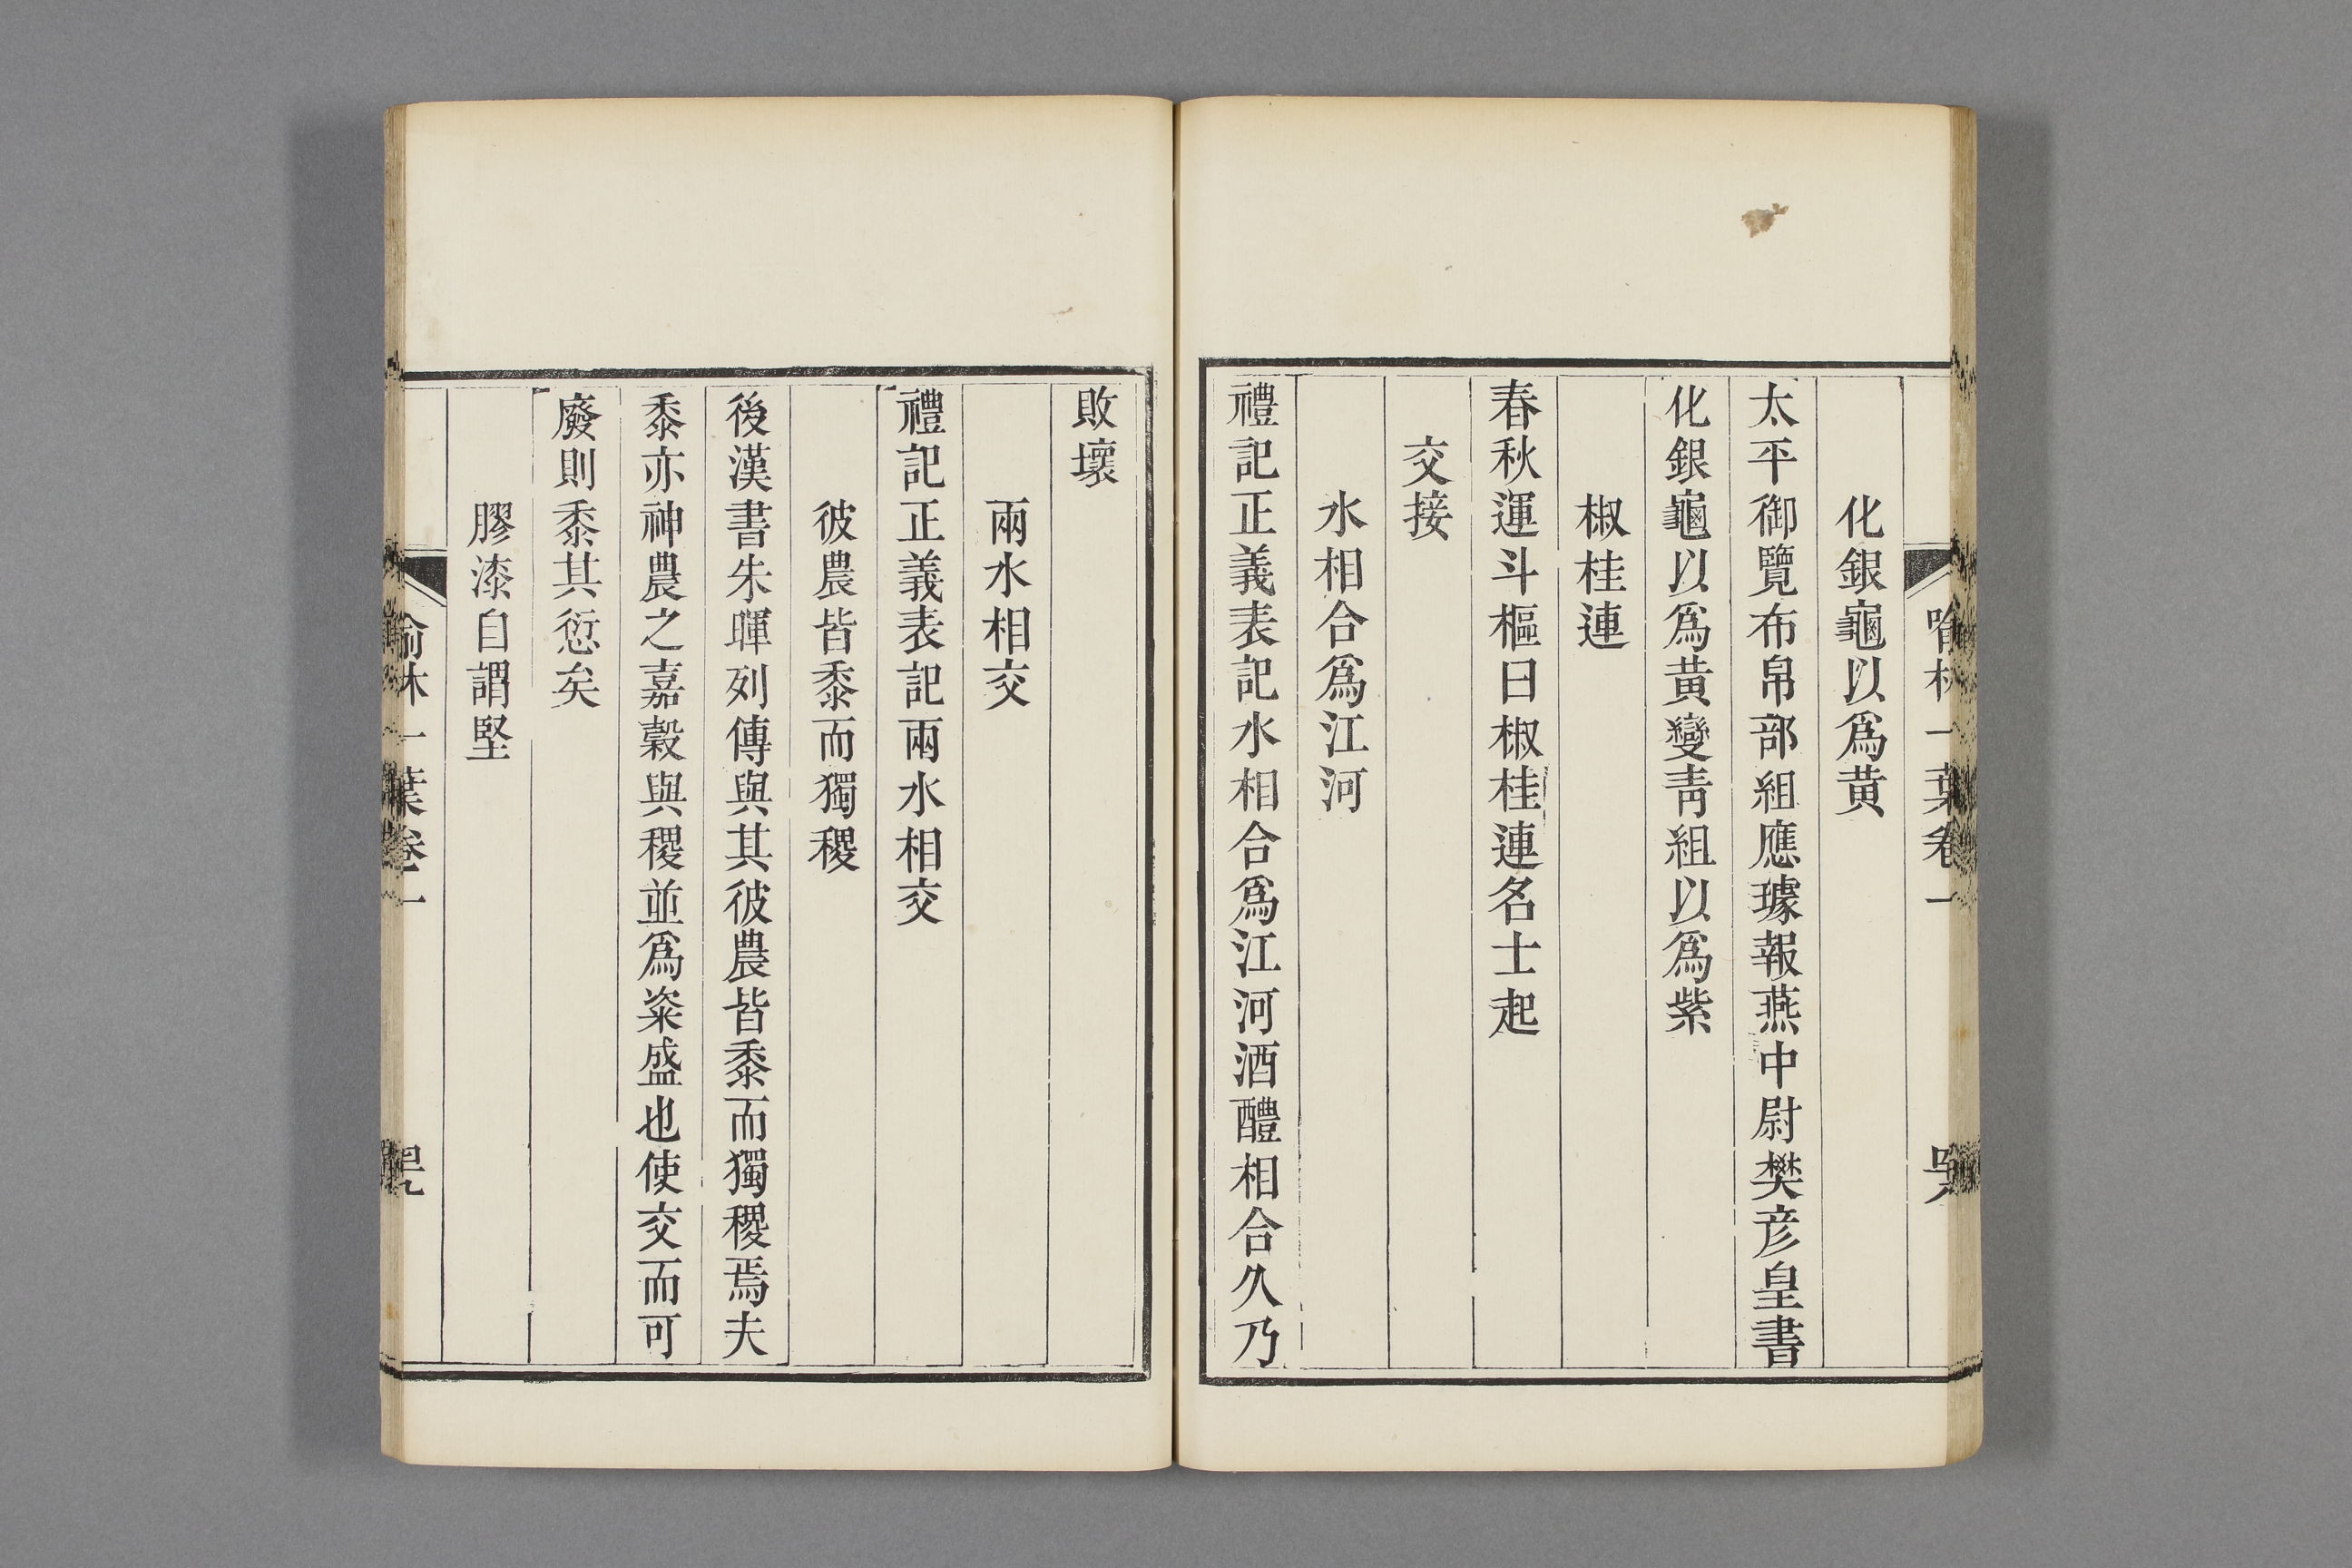 化銀龜以爲黃
太平御覽布帛部組應璩報燕中尉樊彦皇書
化銀龜以爲黃變靑組以爲紫
椒桂連
春秋運斗樞曰椒桂連名士起
交接
水相合爲江河
禮記正義表記水相合爲江河酒醴相合久乃
敗壞
兩水相交
禮記正義表記兩水相交
彼農皆黍而獨稷
後漢書朱暉列傳與其彼農皆黍而獨稷焉夫
黍亦神農之嘉穀與稷並爲粢盛也使交而可
廢則黍其愆矣
膠漆自謂堅